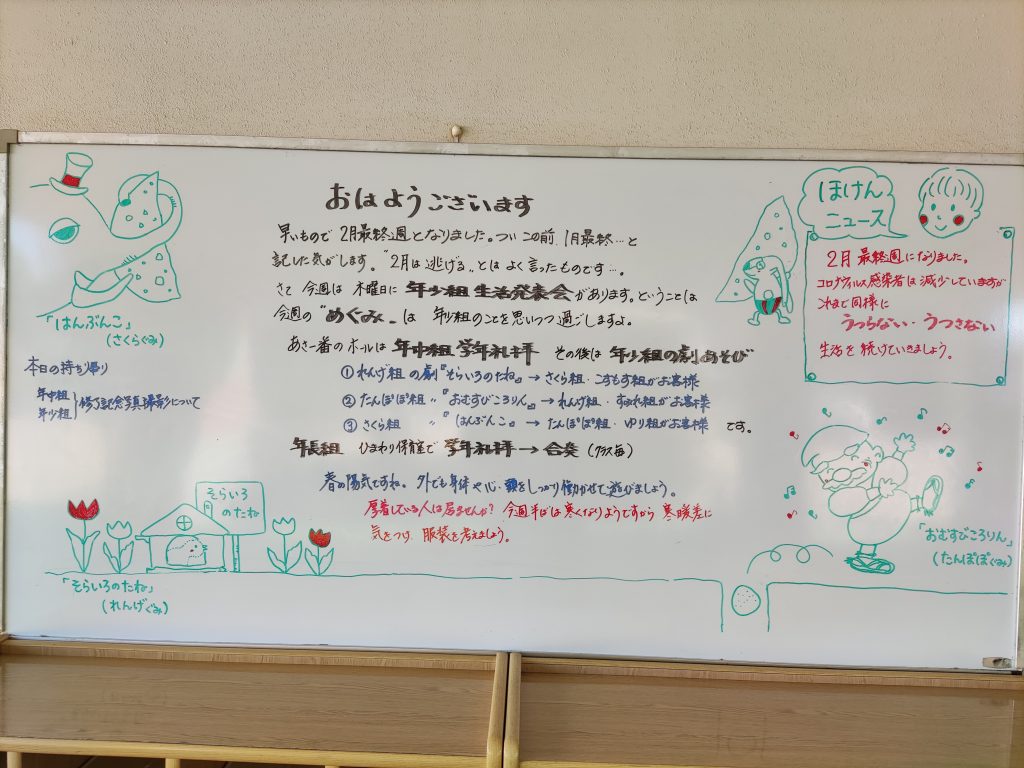 おはようございます
早いもので 2月最終週となりました。つい この前、1月最終…と
記した気がします。"2月は逃げる"とは よく言ったものです…。
さて 今週は 木曜日に 年少組 生活発表会があります。ということは
今週の "めぐみ" は 年少組のことを思いつつ過ごしますよ。
あさ一番のホールは 年中組 学年礼拝 その後は 年少組の劇あそび
① れんげ組 の劇『そらいろのたね』→ さくら組・こすもす組がお客様
② たんぽぽ組 〃 『おむすびころりん』→ れんげ組・すみれ組がお客様
③ さくら組 〃 『はんぶんこ』→ たんぽぽ組・ゆり組がお客様 です。
年長組 ひまわり保育室で 学年礼拝 → 合奏 (クラス毎)
春の陽気ですね。外でも身体や心・頭をしっかり働かせて遊びましょう。
厚着している人は居ませんか? 今週半ばは寒くなりようですから 寒暖差に
気をつけ 服装を考えましょう。
「はんぶんこ」
(さくらぐみ)
本日の持ち帰り
年中組
年少組
修了記念写真撮影について
そらいろ
のたね
「そらいろのたね」
(れんげぐみ)
ほけん
ニュース
2月最終週になりました。
コロナウィルス感染者は減少していますが
これまで同様に
うつらない・うつさない
生活を続けていきましょう。
「おむすびころりん」
(たんぽぽぐみ)